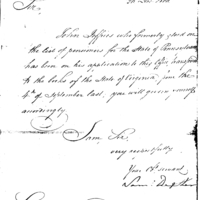 Sir,
John Jeffries who formerly stood on
the list of pensioners for the State of Pennsylvania
has been on his application to this office transferred
to the books of the State of Virginia, from the
4th of September last, you will govern yourself
accordingly.
I am Sir,
very respectfully
Your Obt servant